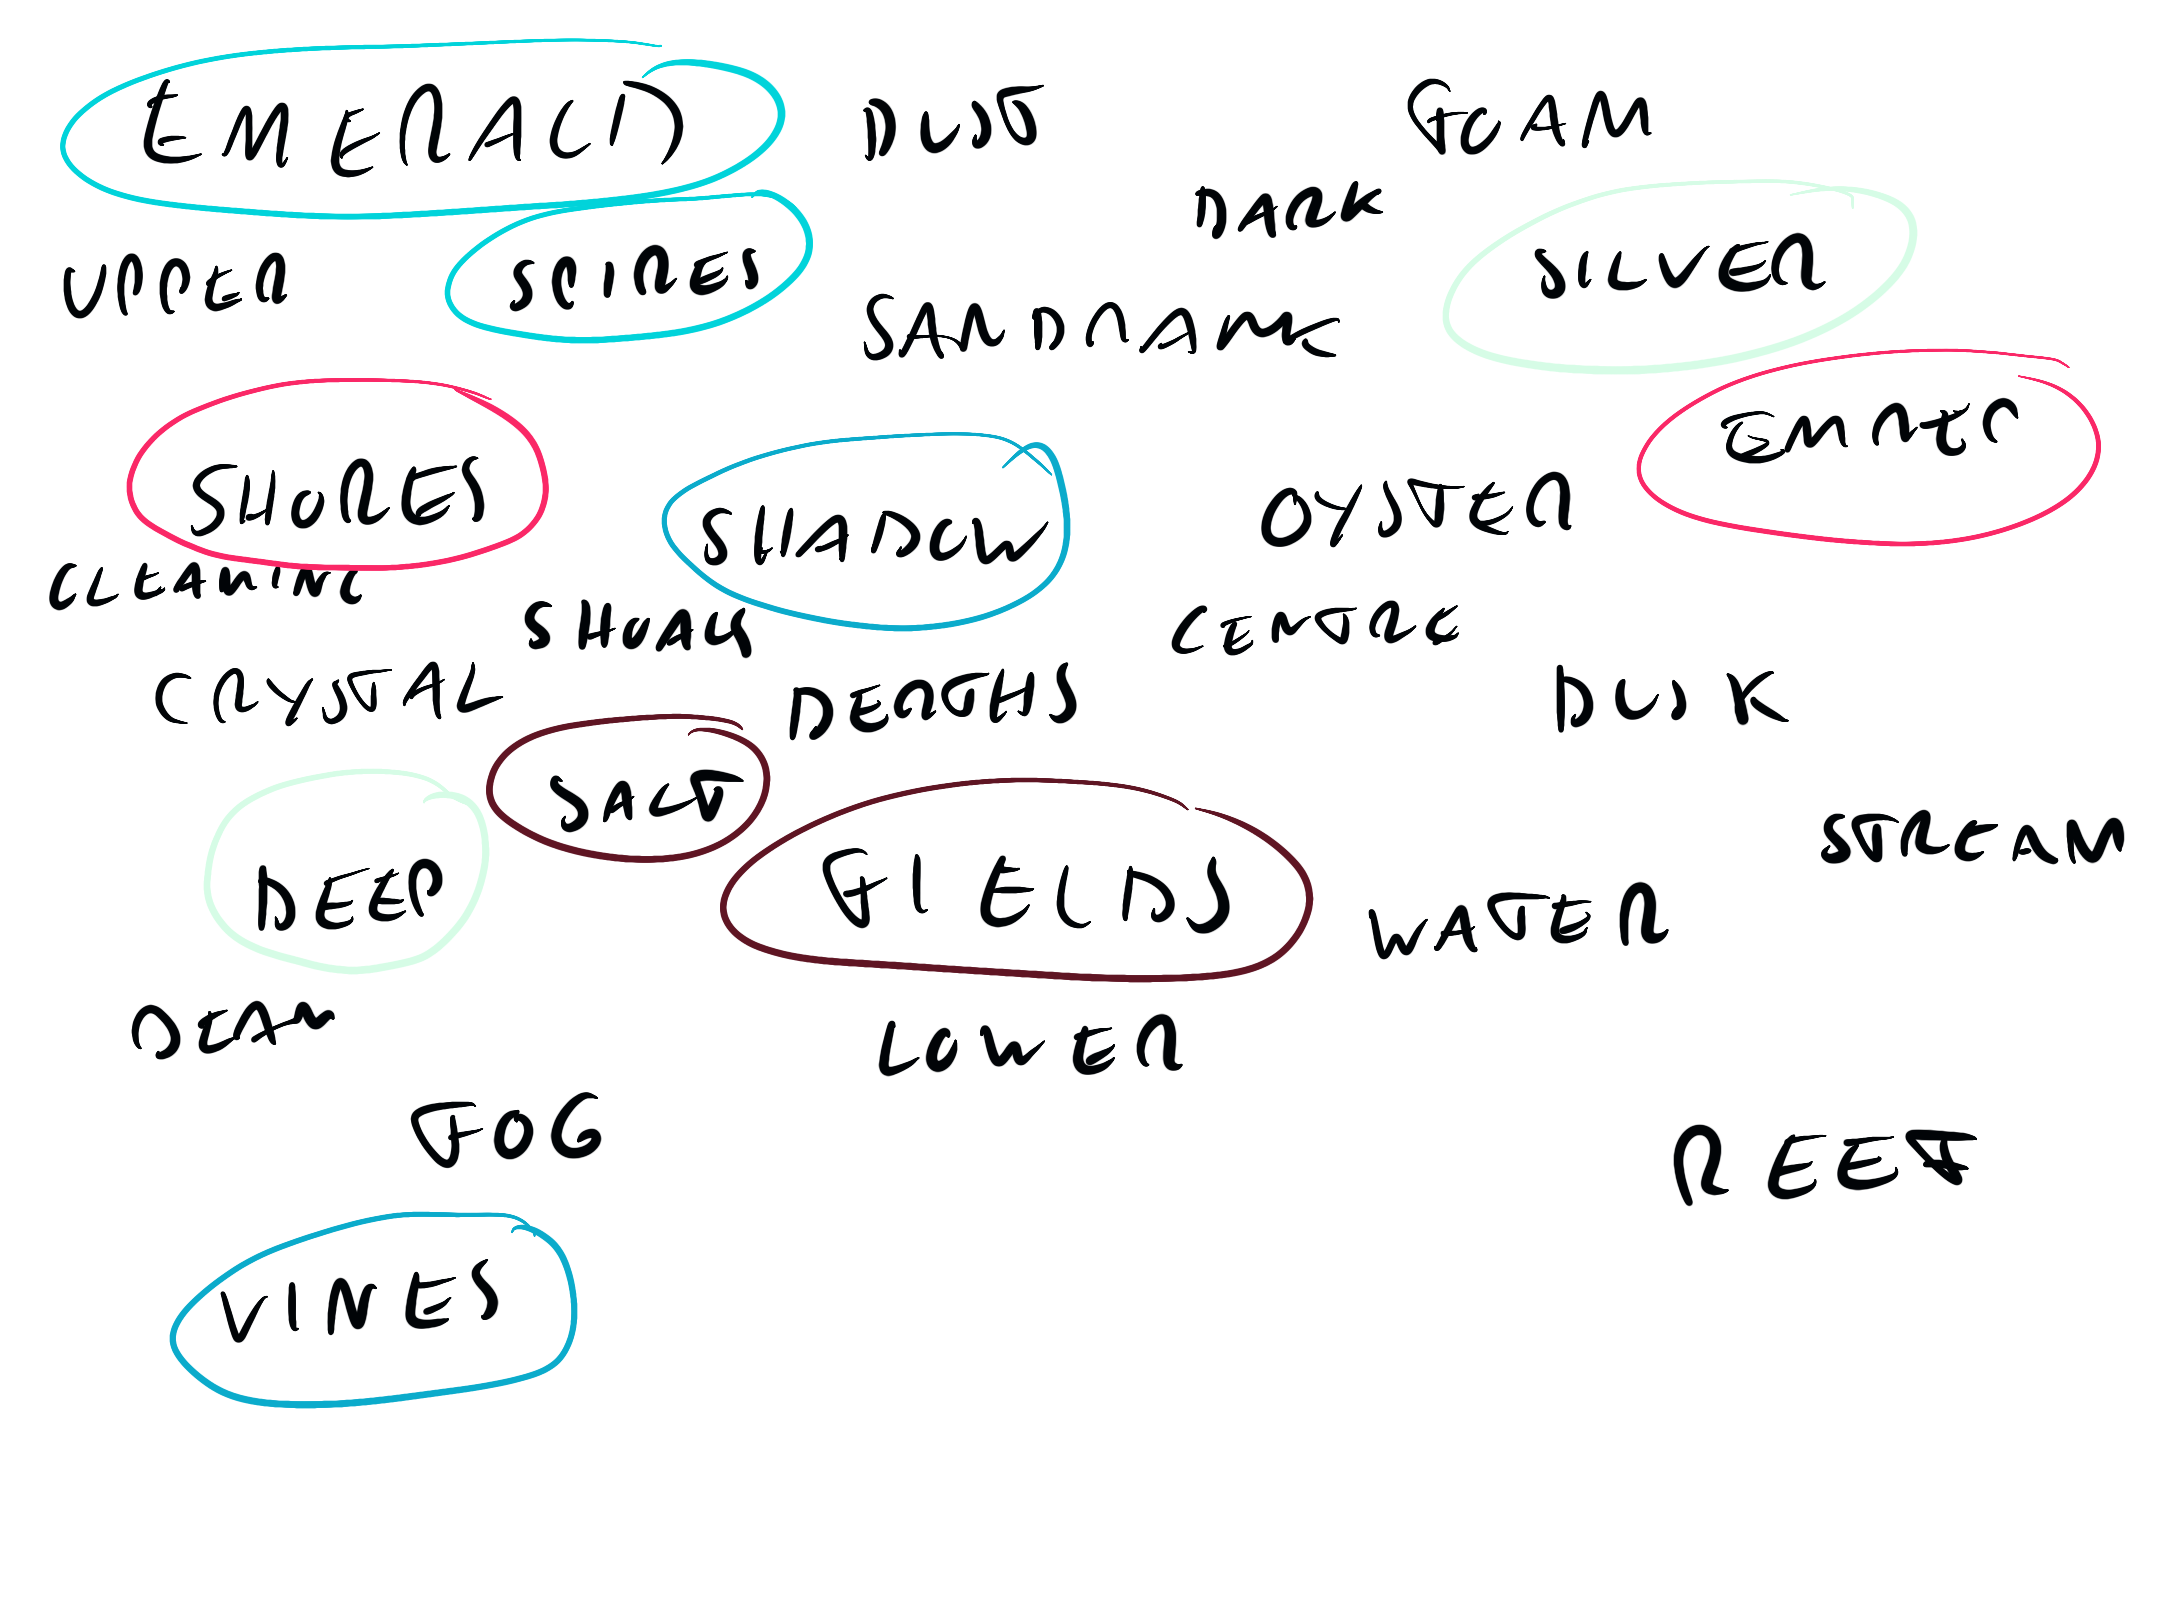 EMERALD DUST FOAM
DARK
UPPER SPIRES SILVER
SANDBANK
EMBER
SHORES SHADOW OYSTER
CLEANING
SHOALS CENTRE
CRYSTAL DEPTHS DUSK
SALT
STREAM
DEEP FIELDS WATER
BEAM
LOWER
FOG
REEF
VINES